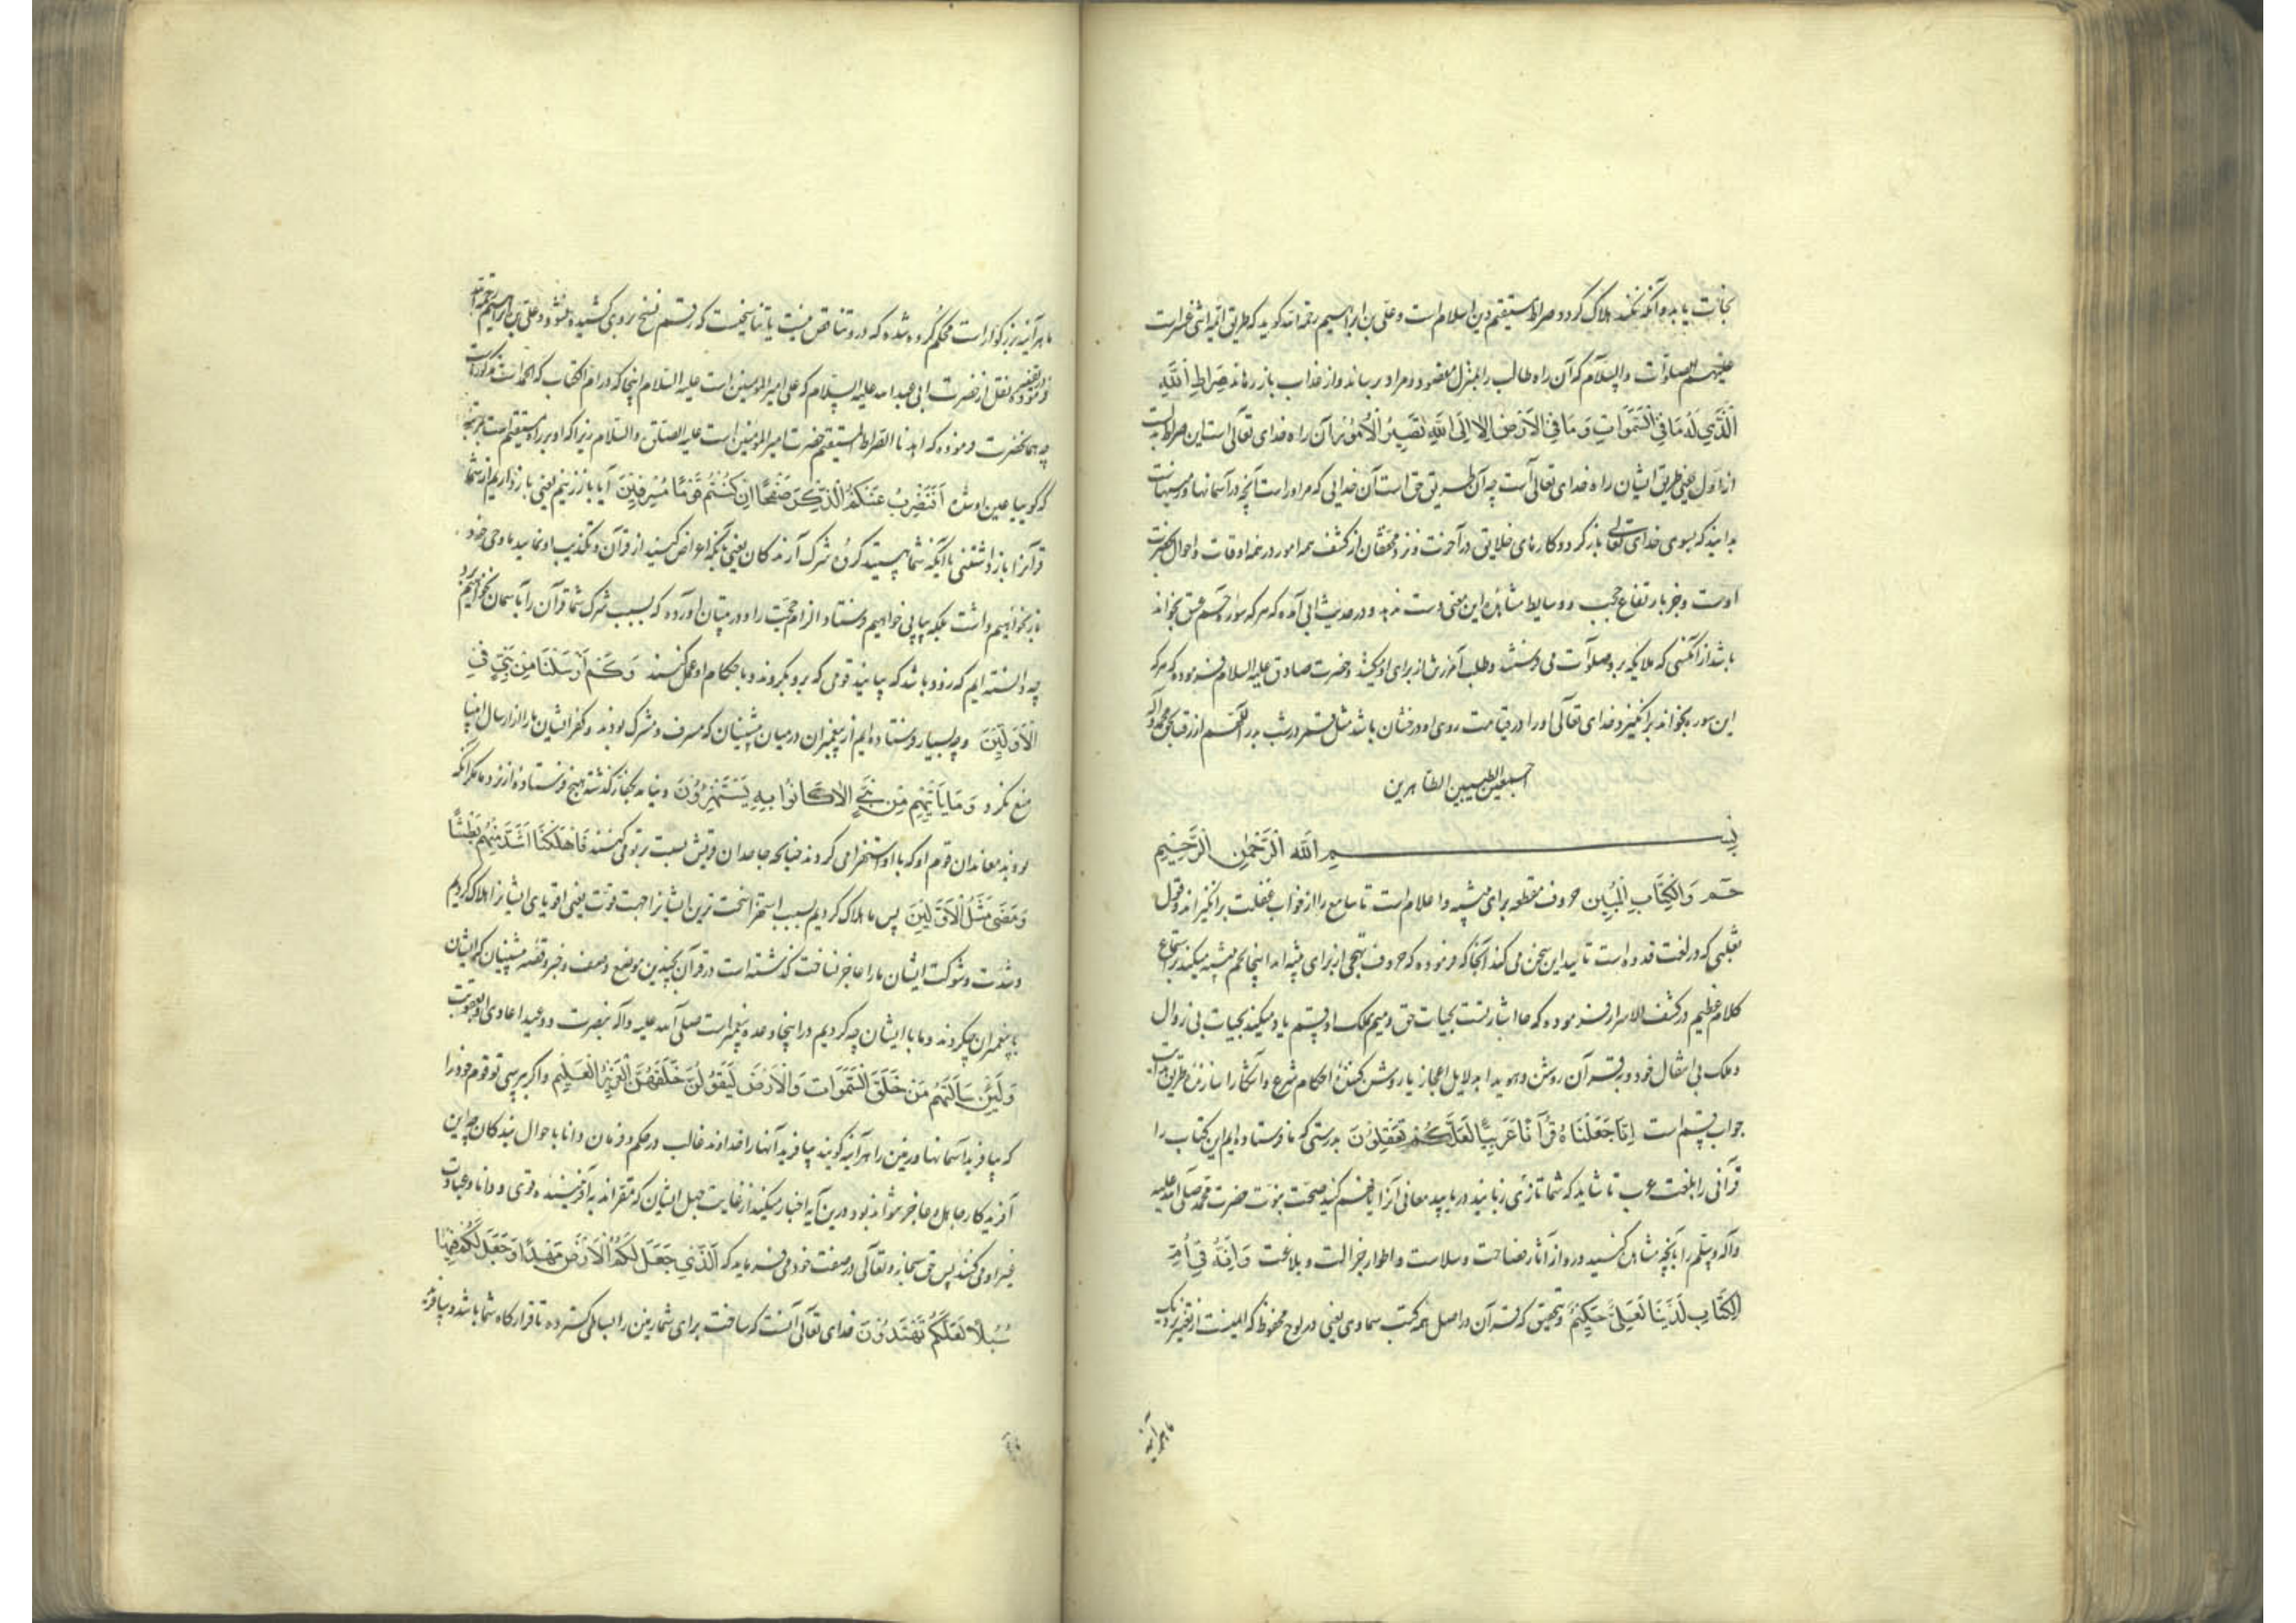 نجات یابد و آنکه نکند هلاک گردد و صراط مستقیم دین اسلام است و علی بن ابراهیم رحمه الله گوید که طریق ائمه اثنی عشر است
علیهم الصلوات والسلام که آن راه طالب را بمنزل مقصود و مراد برساند و از عذاب باز رهاند صِرَاطِ اللَّهِ
الَّذِي لَهُ مَا فِي السَّمَوَاتِ وَ مَا فِي الْاَرْضِ اَلَا اِلَى اللَّهِ تَصِيرُ الْاُمُورُ آن راه خدای تعالی است این صراط بدلست
از اول یعنی طریق ایشان راه خدای تعالی است چه آن طریق حق است آن خدایی که مر او راست آنچه در آسمانها و زمینهاست
بدانید که بسوی خدای تعالی باز گردد کارهای خلایق در آخرت و نزد محققان از کشف همه امور در همه اوقات و احوال بحضرت
اوست و جز بارتفاع حجب و وسایط مشاهده این معنی دست ندهد و در حدیث ابی آمده که هر که سوره حمعسق بخواند
باشد از آنکسی که ملائکه برو صلوات می فرستند و طلب آمرزش از برای او میکنند و حضرت صادق علیه السلام فرموده که هر که
این سوره بخواند برانگیزد خدای تعالی او را در قیامت روی او درفشان باشد مثل قمر در شب بدر اللهم ارزقنا بحق محمد و آله
اجمعین الطیبین الطاهرین
بِسْمِ اللهِ الرَّحْمٰنِ الرَّحِيْمِ
حم وَالْكِتَابِ الْمُبِينِ حروف مقطعه برای تنبیه و اعلام است تا سامع را از خواب غفلت برانگیزاند و قول
ثعلبی که در لغت قدوه است تأیید این سخن می کند آنجا که فرموده که حروف تهجی از برای تنبیه اند اینجا بحم تنبیه میکند بر استماع
کلام عظیم در کشف الاسرار فرموده که حا اشارتست بحیات حق و میم بملک او قسم یاد میکند بحیات بی زوال
و ملک بی انتقال خود و به قرآن روشن و هویدا بدلایل اعجاز یا روشن کننده احکام شرع و آشکارا سازنده طریق هدایت
جواب قسم است اِنَّا جَعَلْنَاهُ قُرْآنًا عَرَبِيًّا لَعَلَّكُمْ تَعْقِلُونَ بدرستی که ما فرستاده ایم این کتاب را
قرآنی را بلغت عرب تا شاید که شما تازی زبانید دریابید معانی آنرا یا فهم کنید صحت نبوت حضرت محمد صلی الله علیه
وآله وسلم را بآنچه مشاهده کنید درو از آثار فصاحت و سلاست و اطوار جزالت و بلاغت وَاِنَّهُ فِي اُمِّ
الْكِتَابِ لَدَيْنَا لَعَلِيٌّ حَكِيمٌ و بتحقیق که قرآن در اصل همه کتب سماوی یعنی در لوح محفوظ که ایمنست از تغییر نزدیک
ما هر آینه
ما هر آینه بزرگوار است محکم کرده شده که درو تناقض نیست یا تناسخیست که رقم نسخ بر وی کشیده نشود و علی بن ابراهیم رحمه الله
در تفسیر خود نقل از حضرت ابی عبدالله علیه السلام که علی امیر المؤمنین است علیه السلام اینجا که در ام الکتاب که الحمد است مذکور است
چه همانحضرت فرموده که اهدنا الصراط المستقیم حضرت امیر المؤمنین است علیه الصلوة والسلام زیرا که او بر راه مستقیم است
که گوییا عین او شده اَفَنَضْرِبُ عَنْكُمُ الذِّكْرَ صَفْحًا اَنْ كُنْتُمْ قَوْمًا مُسْرِفِينَ آیا باز زنیم یعنی باز داریم از شما
قرآنرا باز داشتنی با آنکه شما هستید گروه شرک آرندگان یعنی بآنکه اعراض کنید از قرآن و تکذیب او نمایید ما وحی خود
باز نخواهیم داشت بلکه پیاپی خواهیم فرستاد و الزام حجت را و در تبیان آورده که بسبب شرک شما قرآن را بآسمان نخواهیم برد
چه دانسته ایم که زود باشد که بیایند قومی که برو بگروند و باحکام او عمل کنند وَكَمْ اَرْسَلْنَا مِنْ نَبِيٍّ فِي
الْاَوَّلِينَ و چه بسیار فرستاده ایم از پیغمبران در میان پیشینیان که مسرف و مشرک بودند و کفر ایشان ما را از ارسال انبیا
منع نکرد وَمَا يَأْتِيهِمْ مِنْ نَبِيٍّ اِلَّا كَانُوا بِهِ يَسْتَهْزِؤُنَ و نیامد بجماعت گذشته هیچ فرستاده از نزد ما مگر آنکه
بودند معاندان قوم او که با او استهزا می کردند چنانکه جاحدان قریش نسبت بتو می کنند فَاَهْلَكْنَا اَشَدَّ مِنْهُمْ بَطْشًا
وَمَضَى مَثَلُ الْاَوَّلِينَ پس ما هلاک کردیم بسبب استهزا سخت ترین ایشانرا جهت قوت یعنی اقویای ایشانرا هلاک کردیم
و شدت و شوکت ایشان ما را عاجز نساخت و گذشته است در قرآن بچندین موضع وصف و خبر و قصه پیشینیان که ایشان
با پیغمبران چه کردند و ما با ایشان چه کردیم در اینجا وعده پیغمبر است صلی الله علیه وآله بنصرت و وعید اعادی او بعقوبت
وَلَئِنْ سَاَلْتَهُمْ مَنْ خَلَقَ السَّمَوَاتِ وَالْاَرْضَ لَيَقُولُنَّ خَلَقَهُنَّ الْعَزِيزُ الْعَلِيمُ و اگر بپرسی تو قوم خود را
که بیافرید آسمانها و زمین را هر آینه گویند بیافرید آنها را خداوند غالب در حکم و فرمان دانا باحوال بندگان چه این
آفریدگار جاهل و عاجز نتواند بود و درین آیه اخبار میکند از غایت جهل ایشان که مقرانند به آفریننده قوی و دانا و عبادت
غیر او می کنند پس حق سبحانه و تعالی در صفت خود می فرماید که اَلَّذِي جَعَلَ لَكُمُ الْاَرْضَ مَهْدًا وَجَعَلَ لَكُمْ فِيهَا
سُبُلًا لَعَلَّكُمْ تَهْتَدُونَ خدای تعالی آنست که ساخت برای شما زمین را بساطی گسترده تا قرارگاه شما باشد و بیافرید